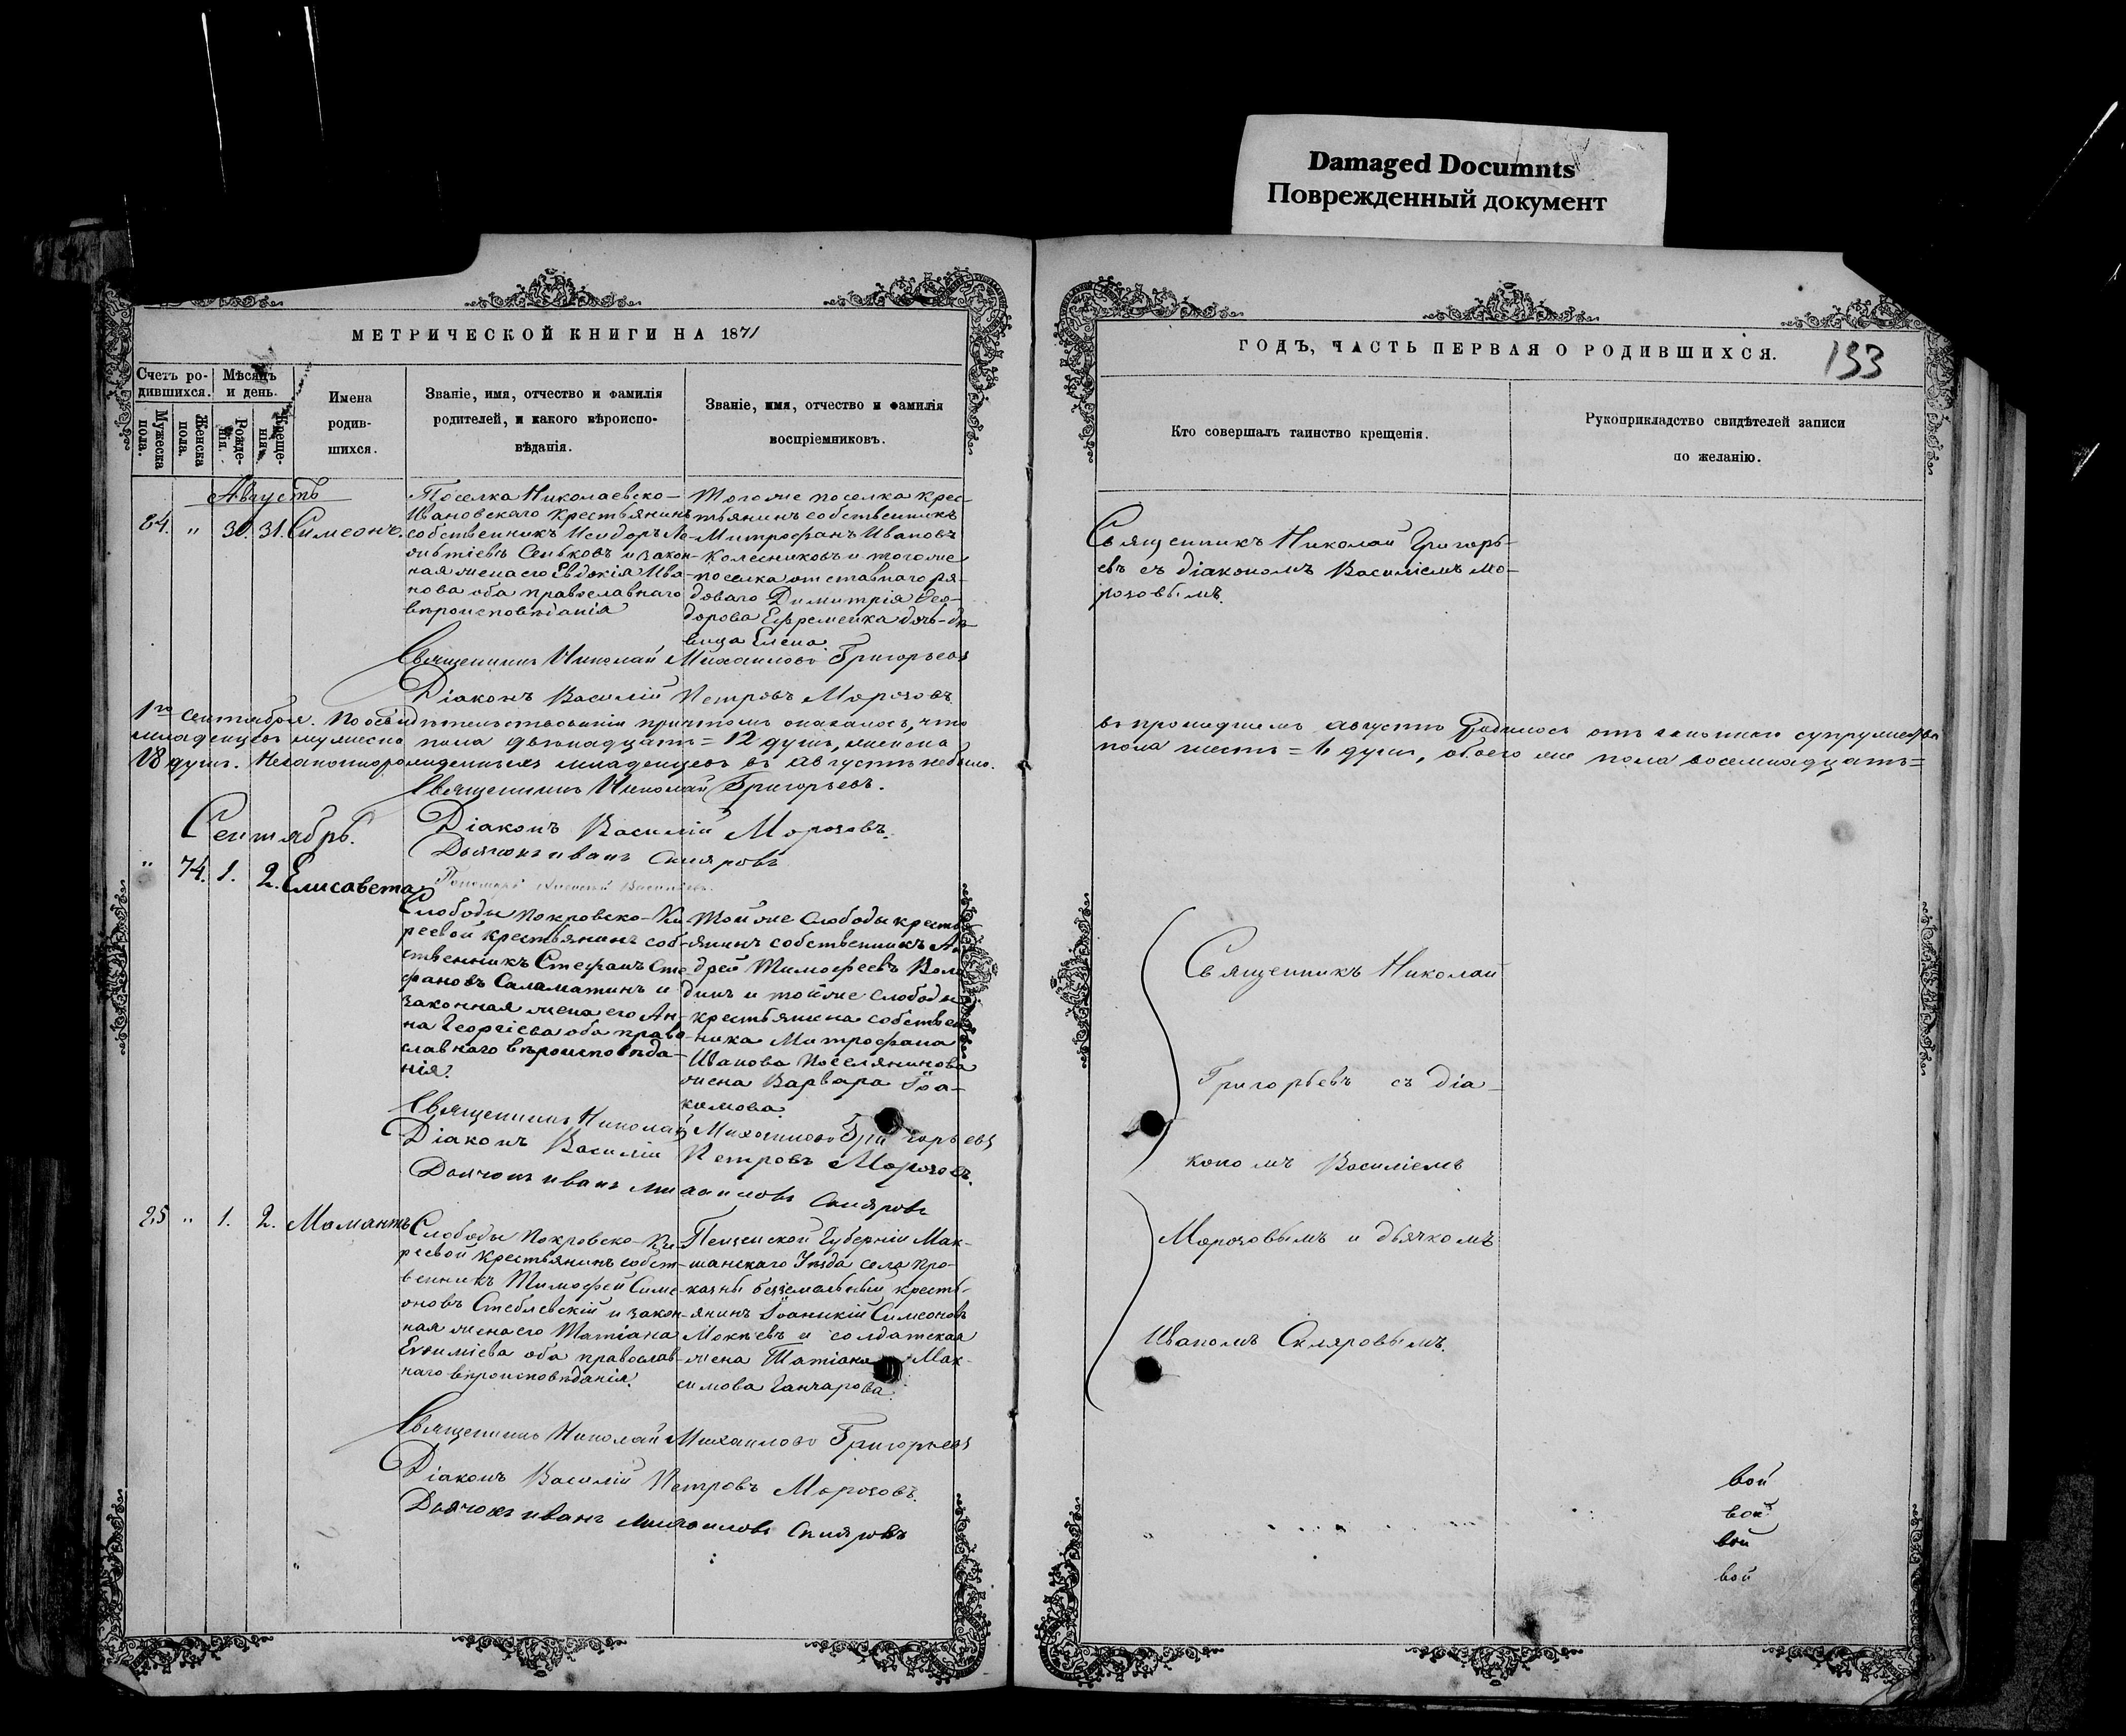 Damaged Documnts
Поврежденный документ
МЕТРИЧЕСКОЙ КНИГИ НА 1871
Счетъ ро-
дившихся.
Мѣсяцъ
и день.
Мужеска
пола.
Женска
пола.
Рожде-
нія.
Креще-
нія.
Имена
родив-
шихся.
Званіе, имя, отчество и фамилія
родителей, и какого вѣроиспо-
вѣданія.
Званіе, имя, отчество и фамилія
воспріемниковъ.
Августъ
84. " 30. 31. Симеонъ.
Поселка Николаевско-
Ивановскаго крестьянинъ
собственникъ Исидоръ Ле-
онтіевъ Сеньковъ и закон-
ная жена его Евдокія Ива-
нова оба православнаго
вѣроисповѣданія
Тогоже поселка крес-
тьянинъ собственникъ
Митрофанъ Ивановъ
Колесниковъ и тогоже
поселка отставнаго ря-
доваго Димитрія Ѳео-
дорова Ефременка дочь-дѣ-
вица Елена.
Священникъ Николай Михаиловъ Григорьевъ
Діаконъ Василій Петровъ Морозовъ.
1го Сентября. По освидѣтельствованіи причтомъ оказалось, что
младенцевъ мужеска пола двѣнадцать = 12 душъ, женска
18 душъ. Незаконнорожденныхъ младенцевъ въ августѣ небыло.
Священникъ Николай Григорьевъ.
Діаконъ Василій Морозовъ.
Дьячокъ Иванъ Скляровъ
Сентябрь.
" 74. 1. 2. Елисавета
Слободы Покровско-Ки-
реевой крестьянинъ соб-
ственникъ Стефанъ Сте-
фановъ Саламатинъ и
законная жена его Ан-
на Георгіева оба право-
славнаго вѣроисповѣда-
нія.
Тойже слободы кресть-
янинъ собственникъ Ан-
дрей Тимофеевъ Воло-
динъ и тойже слободы
крестьянина собствен-
ника Митрофана
Иванова Поселянинова
жена Варвара Іоа-
кимова.
Священникъ Николай Михаиловъ Григорьевъ
Діаконъ Василій Петровъ Морозовъ.
Дьячокъ Иванъ Михаиловъ Скляровъ
25 " 1. 2. Мамантъ
Слободы Покровско-Ки-
реевой крестьянинъ собст-
венникъ Тимофей Симе-
оновъ Стеблевскій и закон-
ная жена его Татіана
Евфиміева оба православ-
наго вѣроисповѣданія.
Пензенской Губерніи Мак-
шанскаго Уѣзда села Про-
казны безземельный кресть-
янинъ Іоанникій Симеоновъ
Мокѣевъ и солдатская
жена Татіана Мак-
симова Ганчарова.
Священникъ Николай Михаиловъ Григорьевъ
Діаконъ Василій Петровъ Морозовъ.
Дьячокъ Иванъ Михаиловъ Скляровъ
ГОДЪ, ЧАСТЬ ПЕРВАЯ О РОДИВШИХСЯ.
193
Кто совершалъ таинство крещенія.
Рукоприкладство свидѣтелей записи
по желанію.
Священникъ Николай Григорь-
евъ съ діакономъ Василіемъ Мо-
розовымъ.
въ прошедшемъ августѣ родилось отъ законнаго супружества
пола шесть = 6 душъ, обоего же пола восемнадцать =
Священникъ Николай
Григорьевъ съ діа-
кономъ Василіемъ
Морозовымъ и дьячкомъ
Иваномъ Скляровымъ.
вой
вой
вой
вой